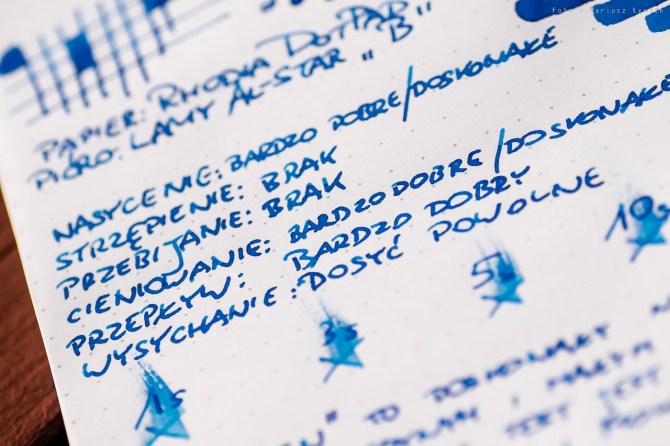 PAPIER: RHODIA DOTPAD
PIÓRO: LAMY AL-STAR "B"
NASYCENIE: BARDZO DOBRE/DOSKONAŁE
STRZĘPIENIE: BRAK
PRZEBIJANIE: BRAK
CIENIOWANIE: BARDZO DOBRE/DOSKONAŁE
PRZEPŁYW: BARDZO DOBRY
WYSYCHANIE: DOSYĆ POWOLNE
1s 3s 5s 10s
TO DOSKONAŁY